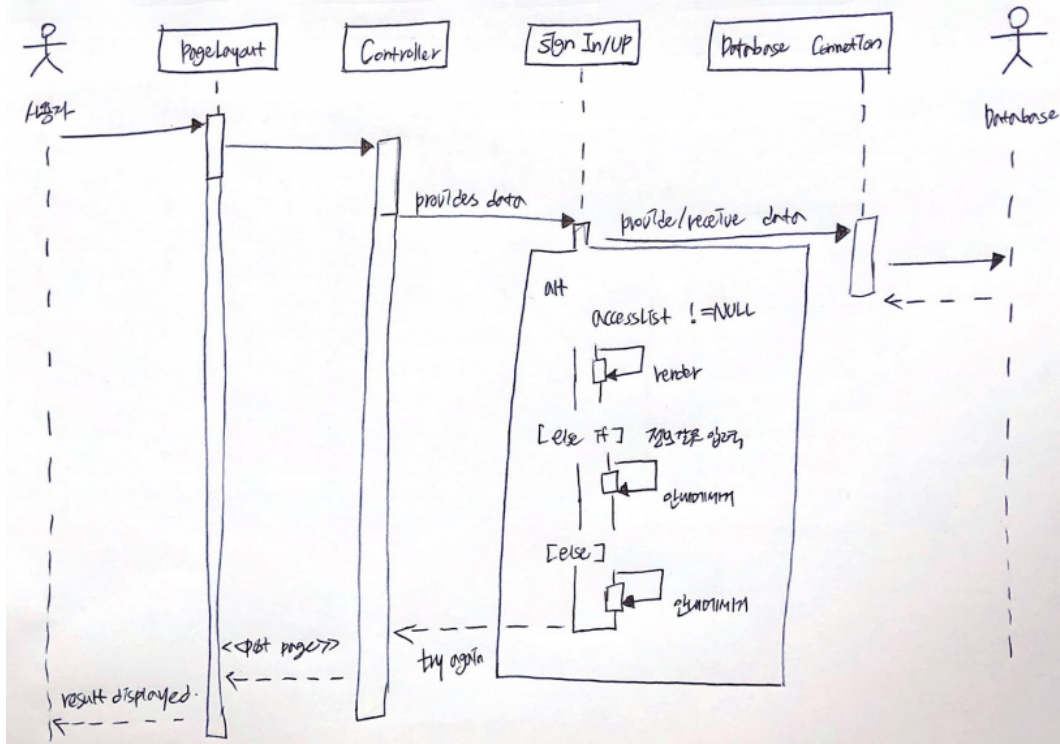 PageLayout
Controller
Sign In/UP
Database Connection
사용자
Database
provides data
provide/receive data
alt
accessList !=NULL
render
[else if]
안내메시지
[else]
안내메시지
try again
<<post page>>
result displayed.